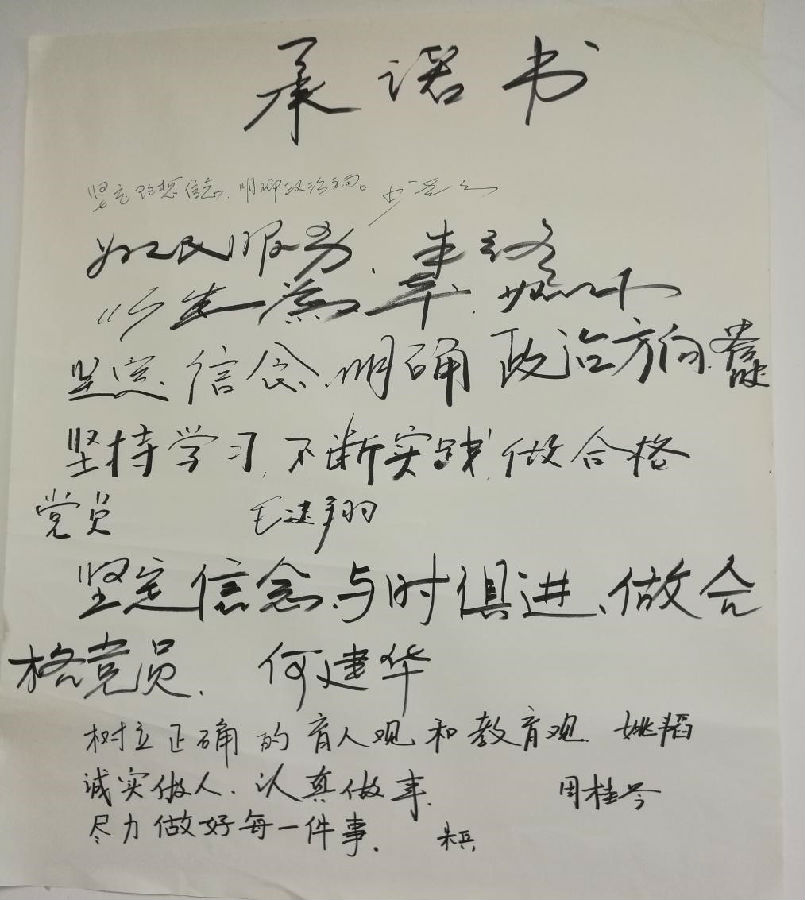 承诺书
坚定理想信念,明确政治方向。
为人民服务、
以生为本、
坚定信念、明确政治方向
坚持学习,不断实践,做合格
党员 毛建翔
坚定信念、与时俱进、做合
格党员、 何建华
树立正确的育人观和教育观 姚韬
诚实做人、认真做事、 周桂芩
尽力做好每一件事、 朱兵